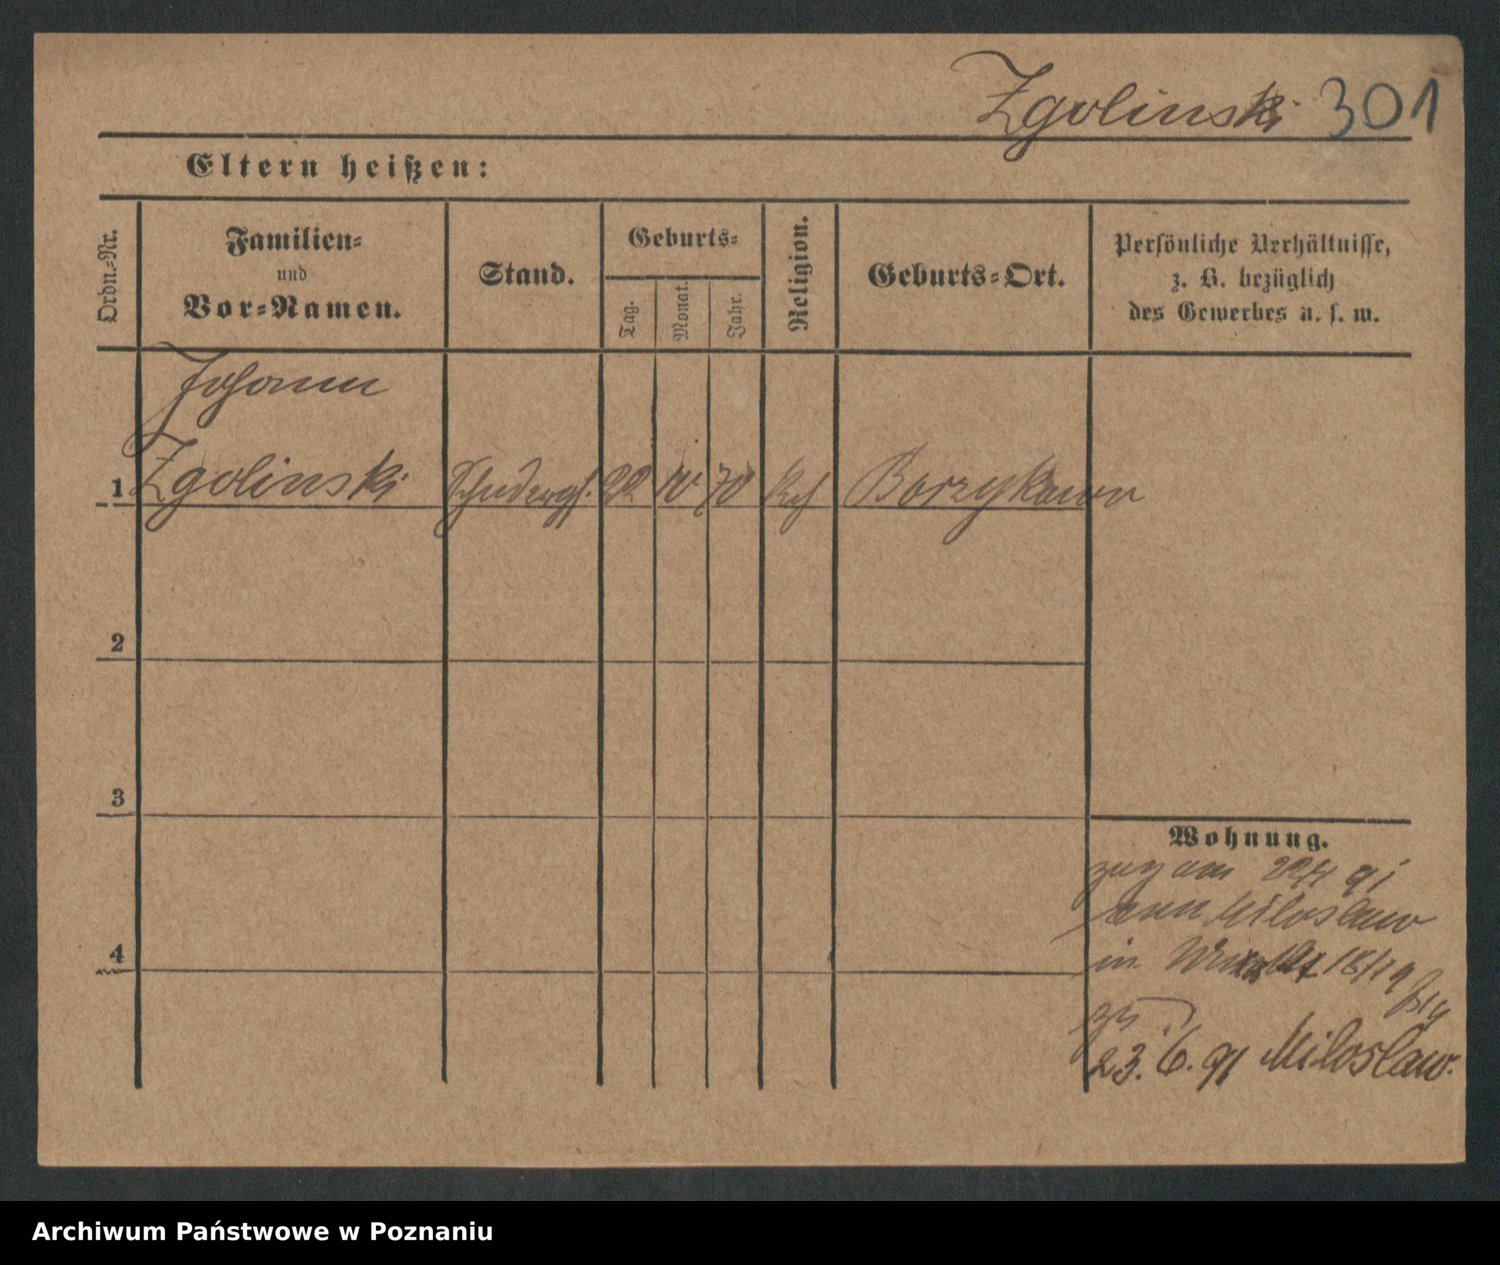 Zgolinski 301
Eltern heißen:
Ordn.-Nr.
Familien-
und
Vor-Namen.
Stand.
Geburts-
Tag.
Monat.
Jahr.
Religion.
Geburts-Ort.
Persönliche Verhältnisse,
z. B. bezüglich
des Gewerbes u. s. w.
Johann
1 Zgolinski 22 70 Borzykowo
2
3
4
Wohnung.
91
Miloslaw
in 18/19
23. 6. 91 Miloslaw.
Archiwum Państwowe w Poznaniu